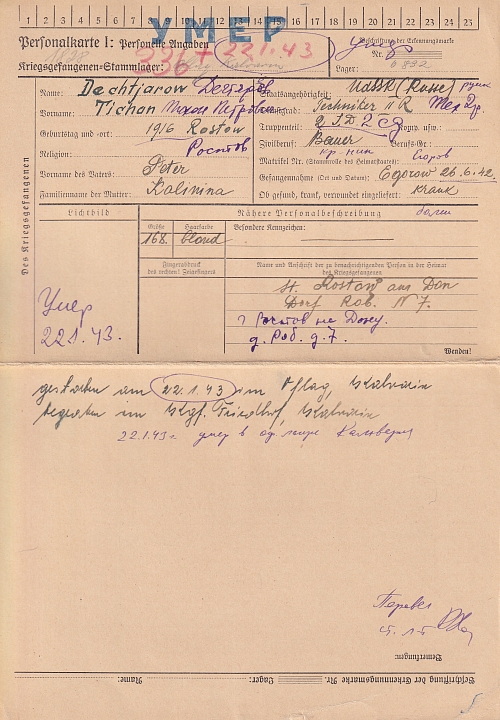 1 2 3 4 5 6 7 8 9 10 11 12 13 14 15 16 17 18 19 20 21 22 23
УМЕР
Personalkarte I: Personelle Angaben
Kriegsgefangenen-Stammlager:
336 + 22.1.43
Beschriftung der Erkennungsmarke
Nr. 6892
Lager:
умер
Des Kriegsgefangenen
Name: Dechtjarow Дегтярев
Vorname: Tichon Тихон Петрович
Geburtstag und -ort: 1916 Rostow
Ростов
Religion:
Vorname des Vaters: Peter
Familienname der Mutter: Kalinina
Staatsangehörigkeit: UdSSR (Russe) русск
Techniker II R. Тех
Truppenteil: 2 сд Komp. usw.:
Zivilberuf: Bauer Berufs-Gr.:
кр-нин
Matrikel Nr. (Stammrolle des Heimatstaates):
Gefangennahme (Ort und Datum): Egorow 26.6.42.
Ob gesund, krank, verwundet eingeliefert: krank
болен
Lichtbild
Nähere Personalbeschreibung
Größe Haarfarbe
168. blond
Besondere Kennzeichen:
Fingerabdruck
des rechten! Zeigefingers
Name und Anschrift der zu benachrichtigenden Person in der Heimat
des Kriegsgefangenen
st. Rostow am Don
Dorf Rab. N 7.
г Ростов на Дону.
д. Раб. д. 7.
Умер
22.1.43.
Wenden!
gestorben am 22.1.43 im Oflag, Kalvarin
begraben im Kgf. Friedhof, Kalvarin
22.1.43г. умер в оф. лагере Кальвария
Перевел
Bemerkungen:
Beschriftung der Erkennungsmarke Nr. Lager: Name: